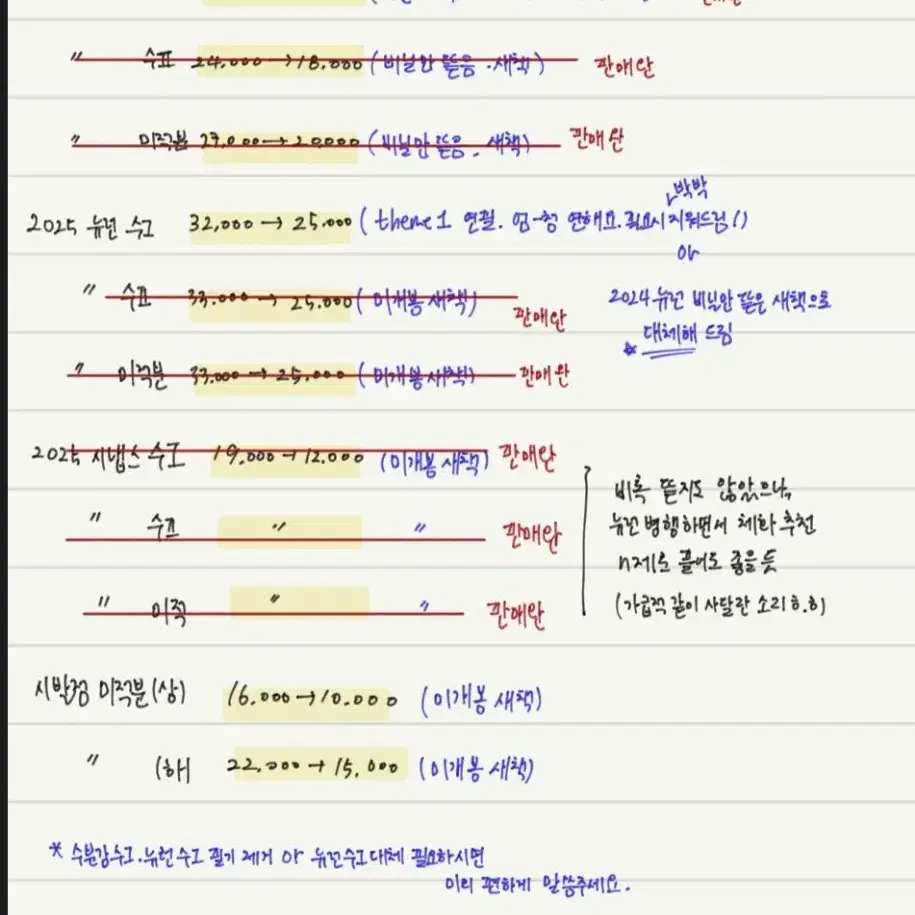 〃 수표 24,000 → 18,000 (비닐안 뜯음. 새책) 판매완
〃 미적분 27,000 → 20,000 (비닐안 뜯음. 새책) 판매완
2025 뉴런 수고 32,000 → 25,000 (theme 1 연필. 엄-청 연해요. 필요시 박박 지워드림!)
or
2024 뉴런 비닐안 뜯은 새책으로
* 대체해 드림
〃 수표 33,000 → 25,000 (미개봉 새책) 판매완
〃 미적분 33,000 → 25,000 (미개봉 새책) 판매완
2025 시냅스 수고 19,000 → 12,000 (미개봉 새책) 판매완
〃 수표 〃 〃 판매완
〃 미적 〃 〃 판매완
비록 뜯지도 않았으나,
뉴런 병행하면서 체화 추천
n제로 풀어도 좋을 듯
(가급적 같이 사달란 소리ㅎ.ㅎ)
시발점 미적분(상) 16,000 → 10,000 (미개봉 새책)
〃 (하) 22,000 → 15,000 (미개봉 새책)
* 수분감수고.뉴런수고 필기 제거 or 뉴런수고 대체 필요하시면
미리 편하게 말씀주세요.